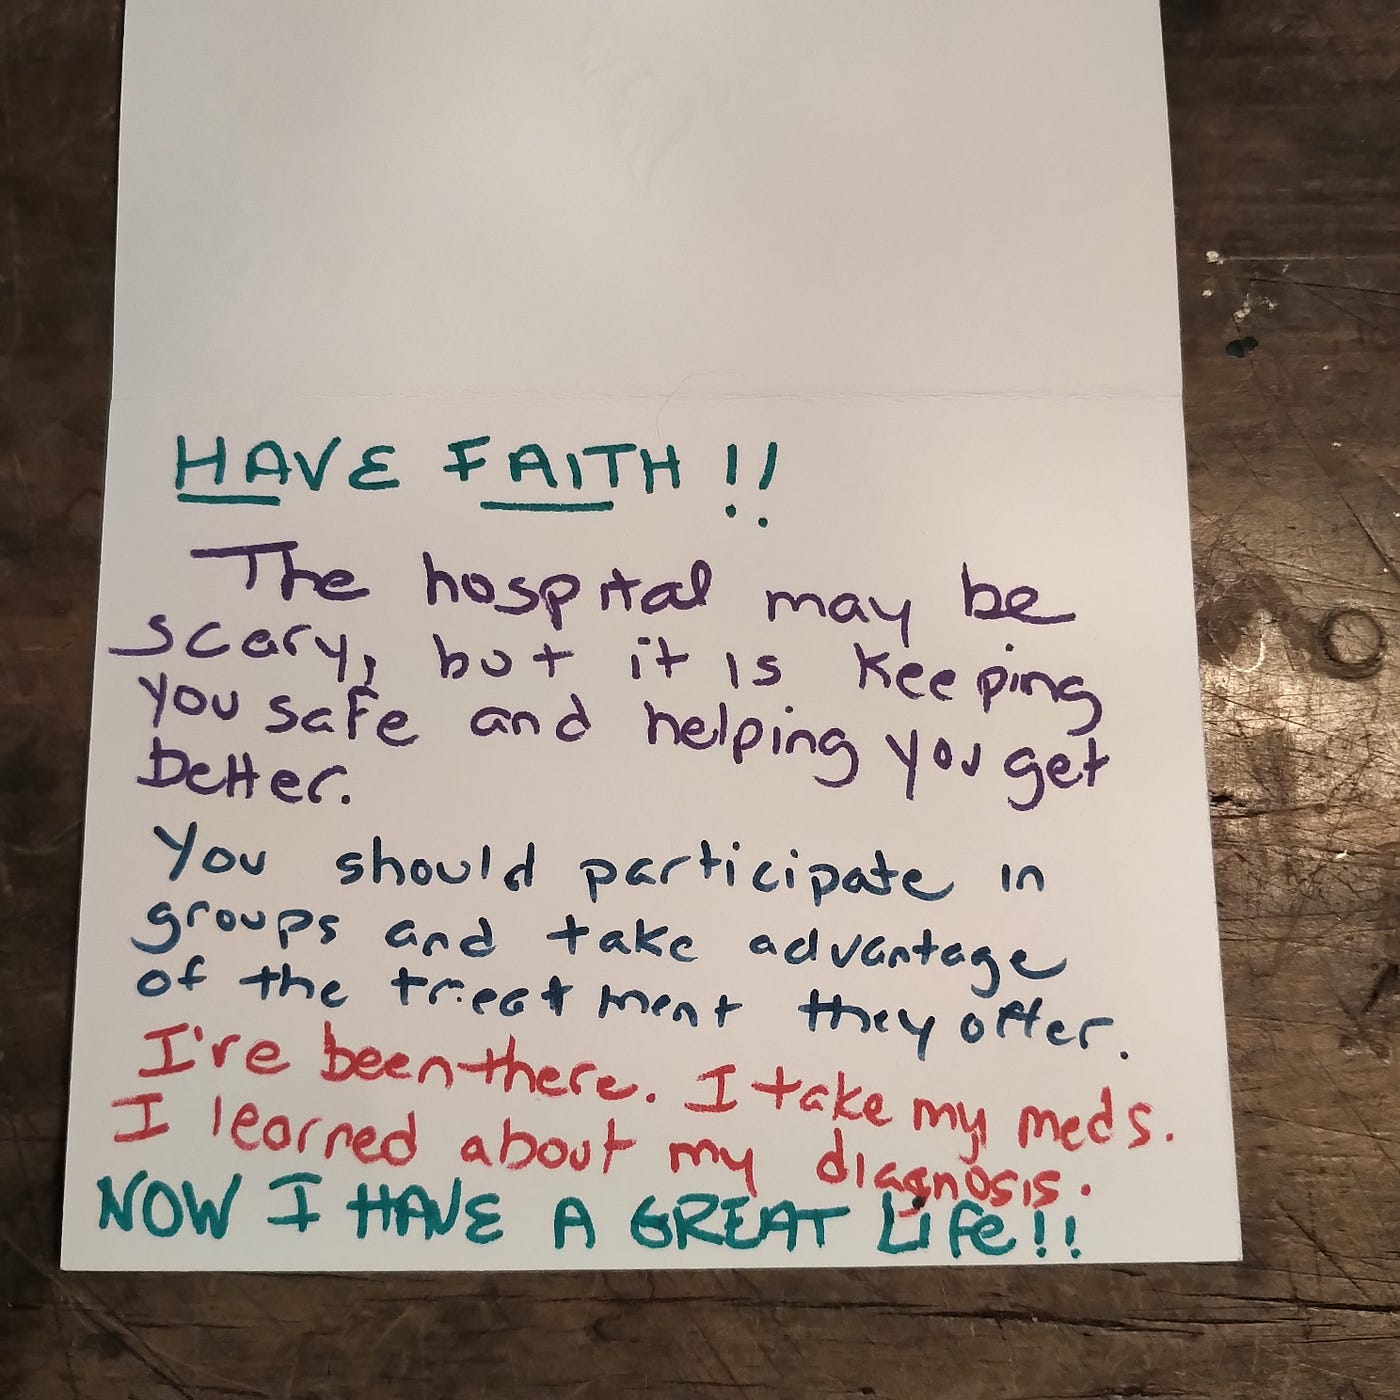 HAVE FAITH!!
The hospital may be
scary, but it is keeping
you safe and helping you get
better.
You should participate in
groups and take advantage
of the treatment they offer.
I've been there. I take my meds.
I learned about my diagnosis.
NOW I HAVE A GREAT LIFE!!